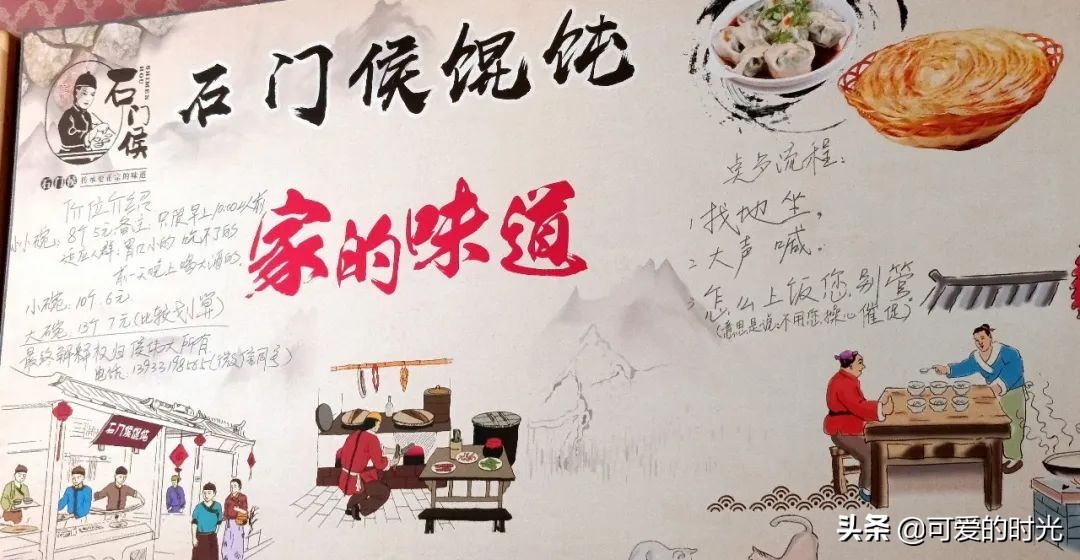 石门侯馄饨
SHIMEN HOU
石门侯
石门侯 传承更正宗的味道
家的味道
价位介绍
小小碗:8个5元.备注:只限早上10:00以前
适应人群:胃口小的 吃不了的
前一天晚上喝大酒的.
小碗:10个.6元.
大碗:13个7元(比较划算)
最终解释权归侯先大所有
电话:13933198565(微信同号)
点多流程:
1.找地坐.
2 大声喊.
3 怎么上饭您别管
(意思是说:不用您操心催促)
石门侯馄饨
头条 @可爱的时光